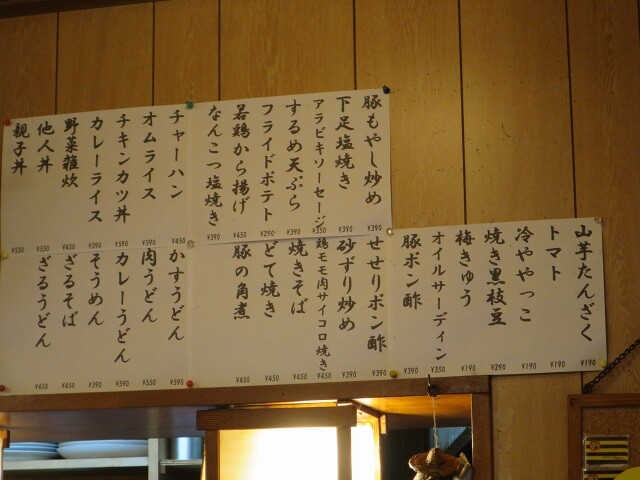 豚もやし炒め ¥390
下足塩焼き ¥390
アラビキソーセージ ¥350
するめ天ぷら ¥390
フライドポテト ¥390
若鶏から揚げ ¥390
なんこつ塩焼き ¥390
チャーハン ¥450
オムライス ¥590
チキンカツ丼 ¥590
カレーライス ¥390
野菜雑炊 ¥450
他人丼 ¥550
親子丼 ¥550
山芋たんざく ¥190
トマト ¥190
冷ややっこ ¥190
焼き黒枝豆 ¥290
梅きゅう ¥190
オイルサーディン ¥350
豚ポン酢 ¥390
せせりポン酢 ¥390
砂ずり炒め ¥390
鶏モモ肉サイコロ焼き ¥450
焼きそば ¥450
どて焼き ¥450
豚の角煮 ¥450
かすうどん ¥590
肉うどん ¥550
カレーうどん ¥590
そうめん ¥390
ざるそば ¥450
ざるうどん ¥450